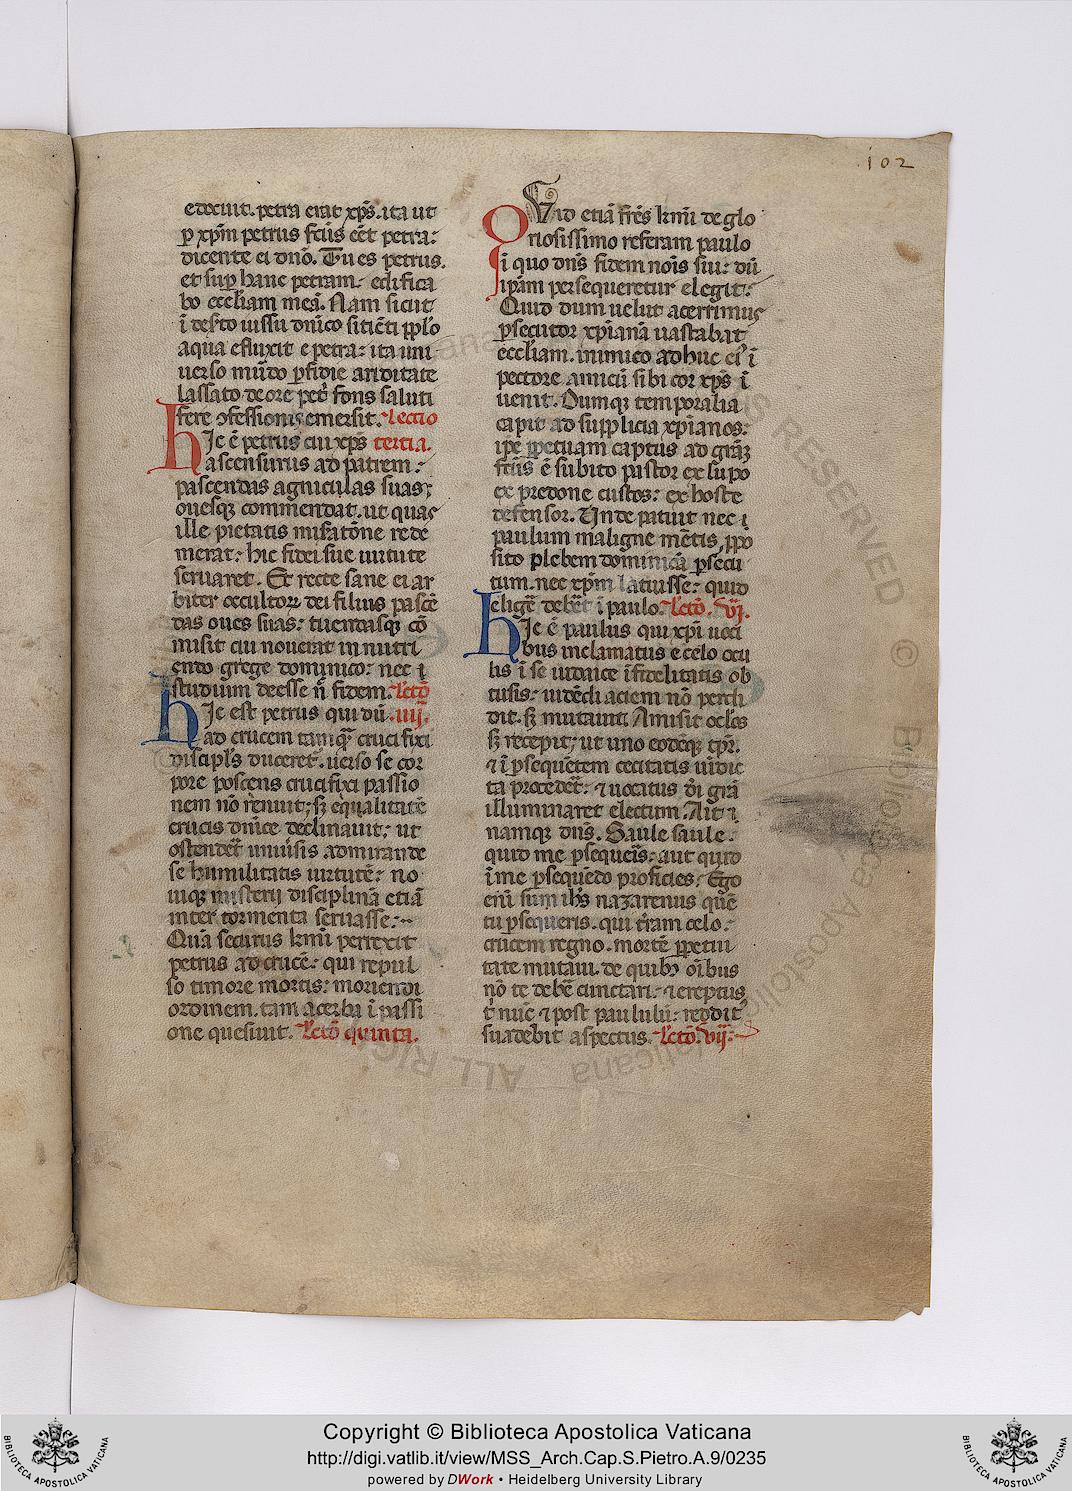 102
edocuit. petra erat xp̄s. ita ut
p xp̄m petrus fc̄us eēt petra:
dicente ei dn̄o. Tu es petrus.
et sup hanc petram. edifica
bo eccl̄iam meā. Nam sicut
ī des̄to iussu dn̄ico sitiēti pp̄lo
aqua efluxit e petra: ita uni
uerso mūdo pfidie ariditate
lassato de ore pet̄ fons saluti
fere ↄfessionis emersit. Lectio
Hic ē petrus cui xp̄s tertia.
ascensurus ad patrem:
pascendas agniculas suas;
ouesq; commendat. ut quas
ille pietatis mis̄atōne rede
merat: hic fidei sue uirtute
seruaret. Et recte sane ei ar
biter occultoꝝ dei filius pascē
das oues suas: tuendasq; cō
misit cui nouerat in nutri
endo grege dominico: nec ī
studium deesse n̄ fidem. Lectō
Hic est petrus qui dū .iiij.
ad crucem tamq̄ crucifixi
discipl̄s duceret. uerso se cor
pore poscens crucifixi passio
nem nō renuit; s; equalitatē
crucis dn̄ice declinauit; ut
ostendēt uniūsis admirande
se humilitatis uirtutē: no
uiq; misterij disciplinā etiā
inter tormenta seruasse:
Quā securus km̄i perrexit
petrus ad crucē: qui repul
so timore mortis: moriendi
ordinem tam acerba ī passi
one quesiuit. Lectō quinta.
Quid etiā fr̄es km̄i de glo
riosissimo referam paulo
ī quo dn̄s fidem nōis sui: dū
ip̄am persequeretur elegit:
Quid dum uelut acerrimus
psecutor xp̄ianā uastabat
eccl̄iam. inimico adhuc ei' ī
pectore amicū sibi cor xp̄s ī
uenit. Dumq; temporalia
capit ad supplicia xp̄ianos:
ip̄e ppetuam captus ad grāz
fc̄us ē subito pastor ex lupo
ex predone custos: ex hoste
defensor. Unde patuit nec ī
paulum maligne mētis ppo
sito plebem dominicā psecu
tum. nec xp̄m latuisse: quid
eligē debēt ī paulo. Lectō. vj.
Hic ē paulus qui xp̄i uoci
bus inclamatus e celo ocu
lis ī se iudaice īfidelitatis ob
tusis: uidēdi aciem nō perdi
dit. s; mutauit. Amisit oclōs
s; recepit; ut uno eodēq; tp̄r.
⁊ ī psequētem cecitatis uīdic
ta procedēt: ⁊ uocatus dī grā
illuminaret electum. Ait ī
namq; dn̄s. Saule saule.
quid me psequeis: aut quid
ī me psequēdo proficies: Ego
enī sum ih̄s nazarenus quē
tu psequeris. qui tr̄am celo:
crucem regno. mortē ppetui
tate mutaui. de quibꝫ oībus
nō te debē cunctari: ⁊ ereptus
t' nūc ⁊ post paululū: reddit'
suadebit aspectus. Lectō. vij:
Copyright © Biblioteca Apostolica Vaticana
http://digi.vatlib.it/view/MSS_Arch.Cap.S.Pietro.A.9/0235
powered by DWork • Heidelberg University Library